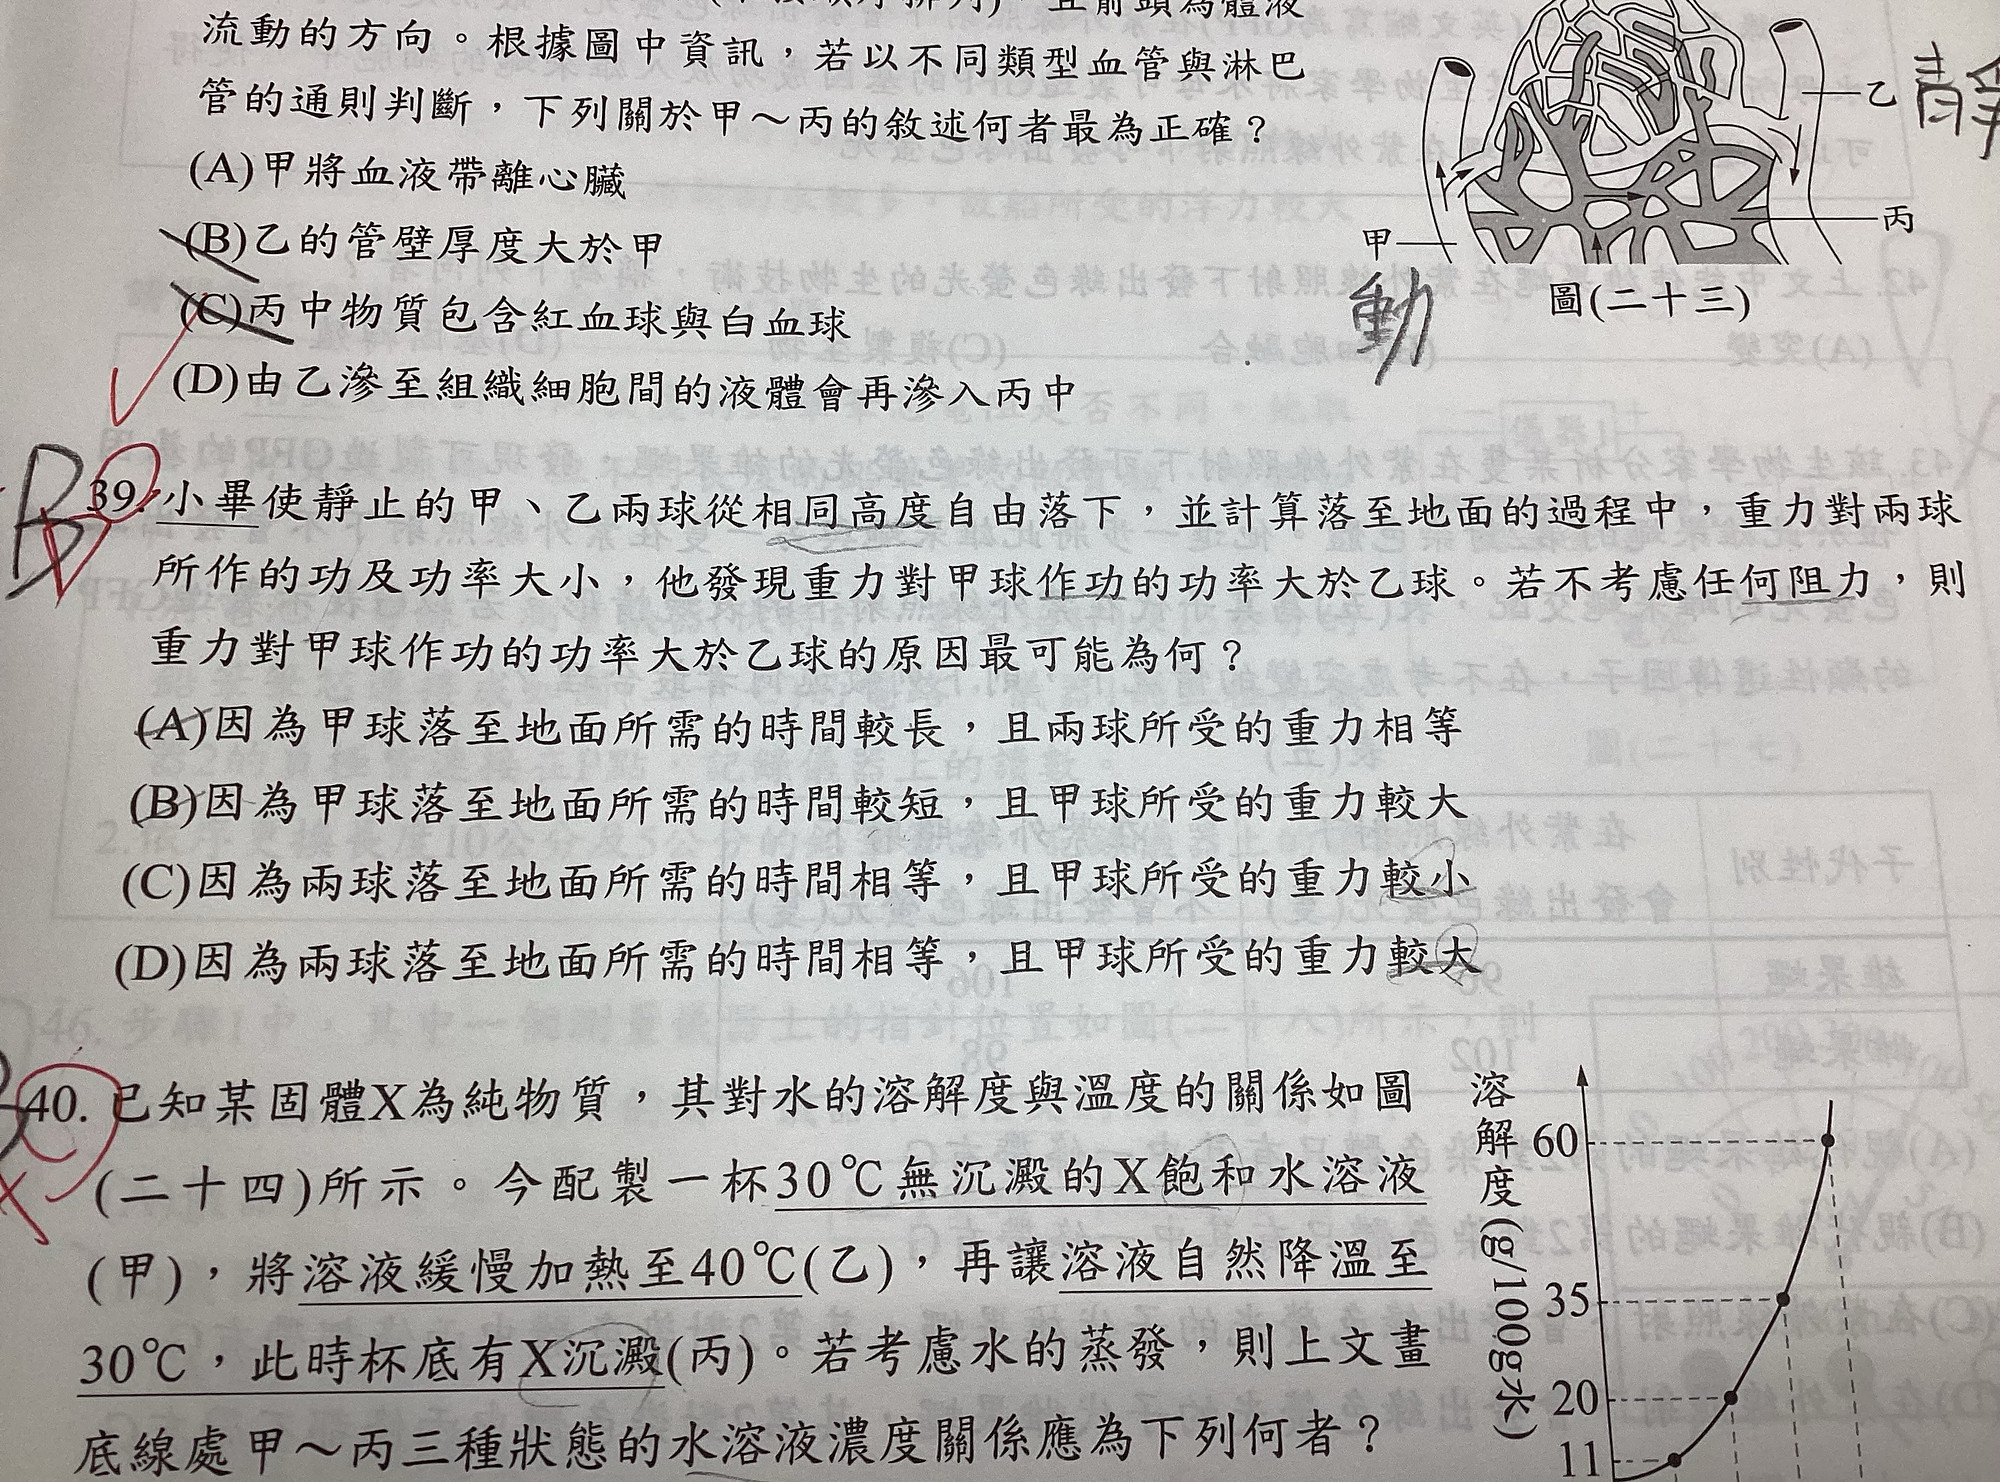 流動的方向。根據圖中資訊，若以不同類型血管與淋巴
管的通則判斷，下列關於甲～丙的敘述何者最為正確？
(A)甲將血液帶離心臟
(B)乙的管壁厚度大於甲
(C)丙中物質包含紅血球與白血球
(D)由乙滲至組織細胞間的液體會再滲入丙中
乙
丙
甲
動
圖(二十三)
B
39. 小畢使靜止的甲、乙兩球從相同高度自由落下，並計算落至地面的過程中，重力對兩球
所作的功及功率大小，他發現重力對甲球作功的功率大於乙球。若不考慮任何阻力，則
重力對甲球作功的功率大於乙球的原因最可能為何？
(A)因為甲球落至地面所需的時間較長，且兩球所受的重力相等
(B)因為甲球落至地面所需的時間較短，且甲球所受的重力較大
(C)因為兩球落至地面所需的時間相等，且甲球所受的重力較小
(D)因為兩球落至地面所需的時間相等，且甲球所受的重力較大
40. 已知某固體X為純物質，其對水的溶解度與溫度的關係如圖
(二十四)所示。今配製一杯30℃無沉澱的X飽和水溶液
(甲)，將溶液緩慢加熱至40℃(乙)，再讓溶液自然降溫至
30℃，此時杯底有X沉澱(丙)。若考慮水的蒸發，則上文畫
底線處甲～丙三種狀態的水溶液濃度關係應為下列何者？
溶解度(g/100g水)
60
35
20
11